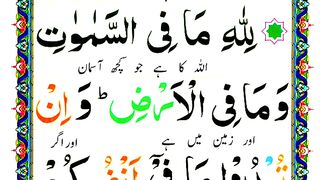 لِلّٰهِ مَا فِی السَّمٰوٰتِ
اللہ کا ہے جو کچھ آسمان
وَمَا فِی الْاَرْضِ ؕ وَ اِنْ
اور زمین میں ہے اور اگر